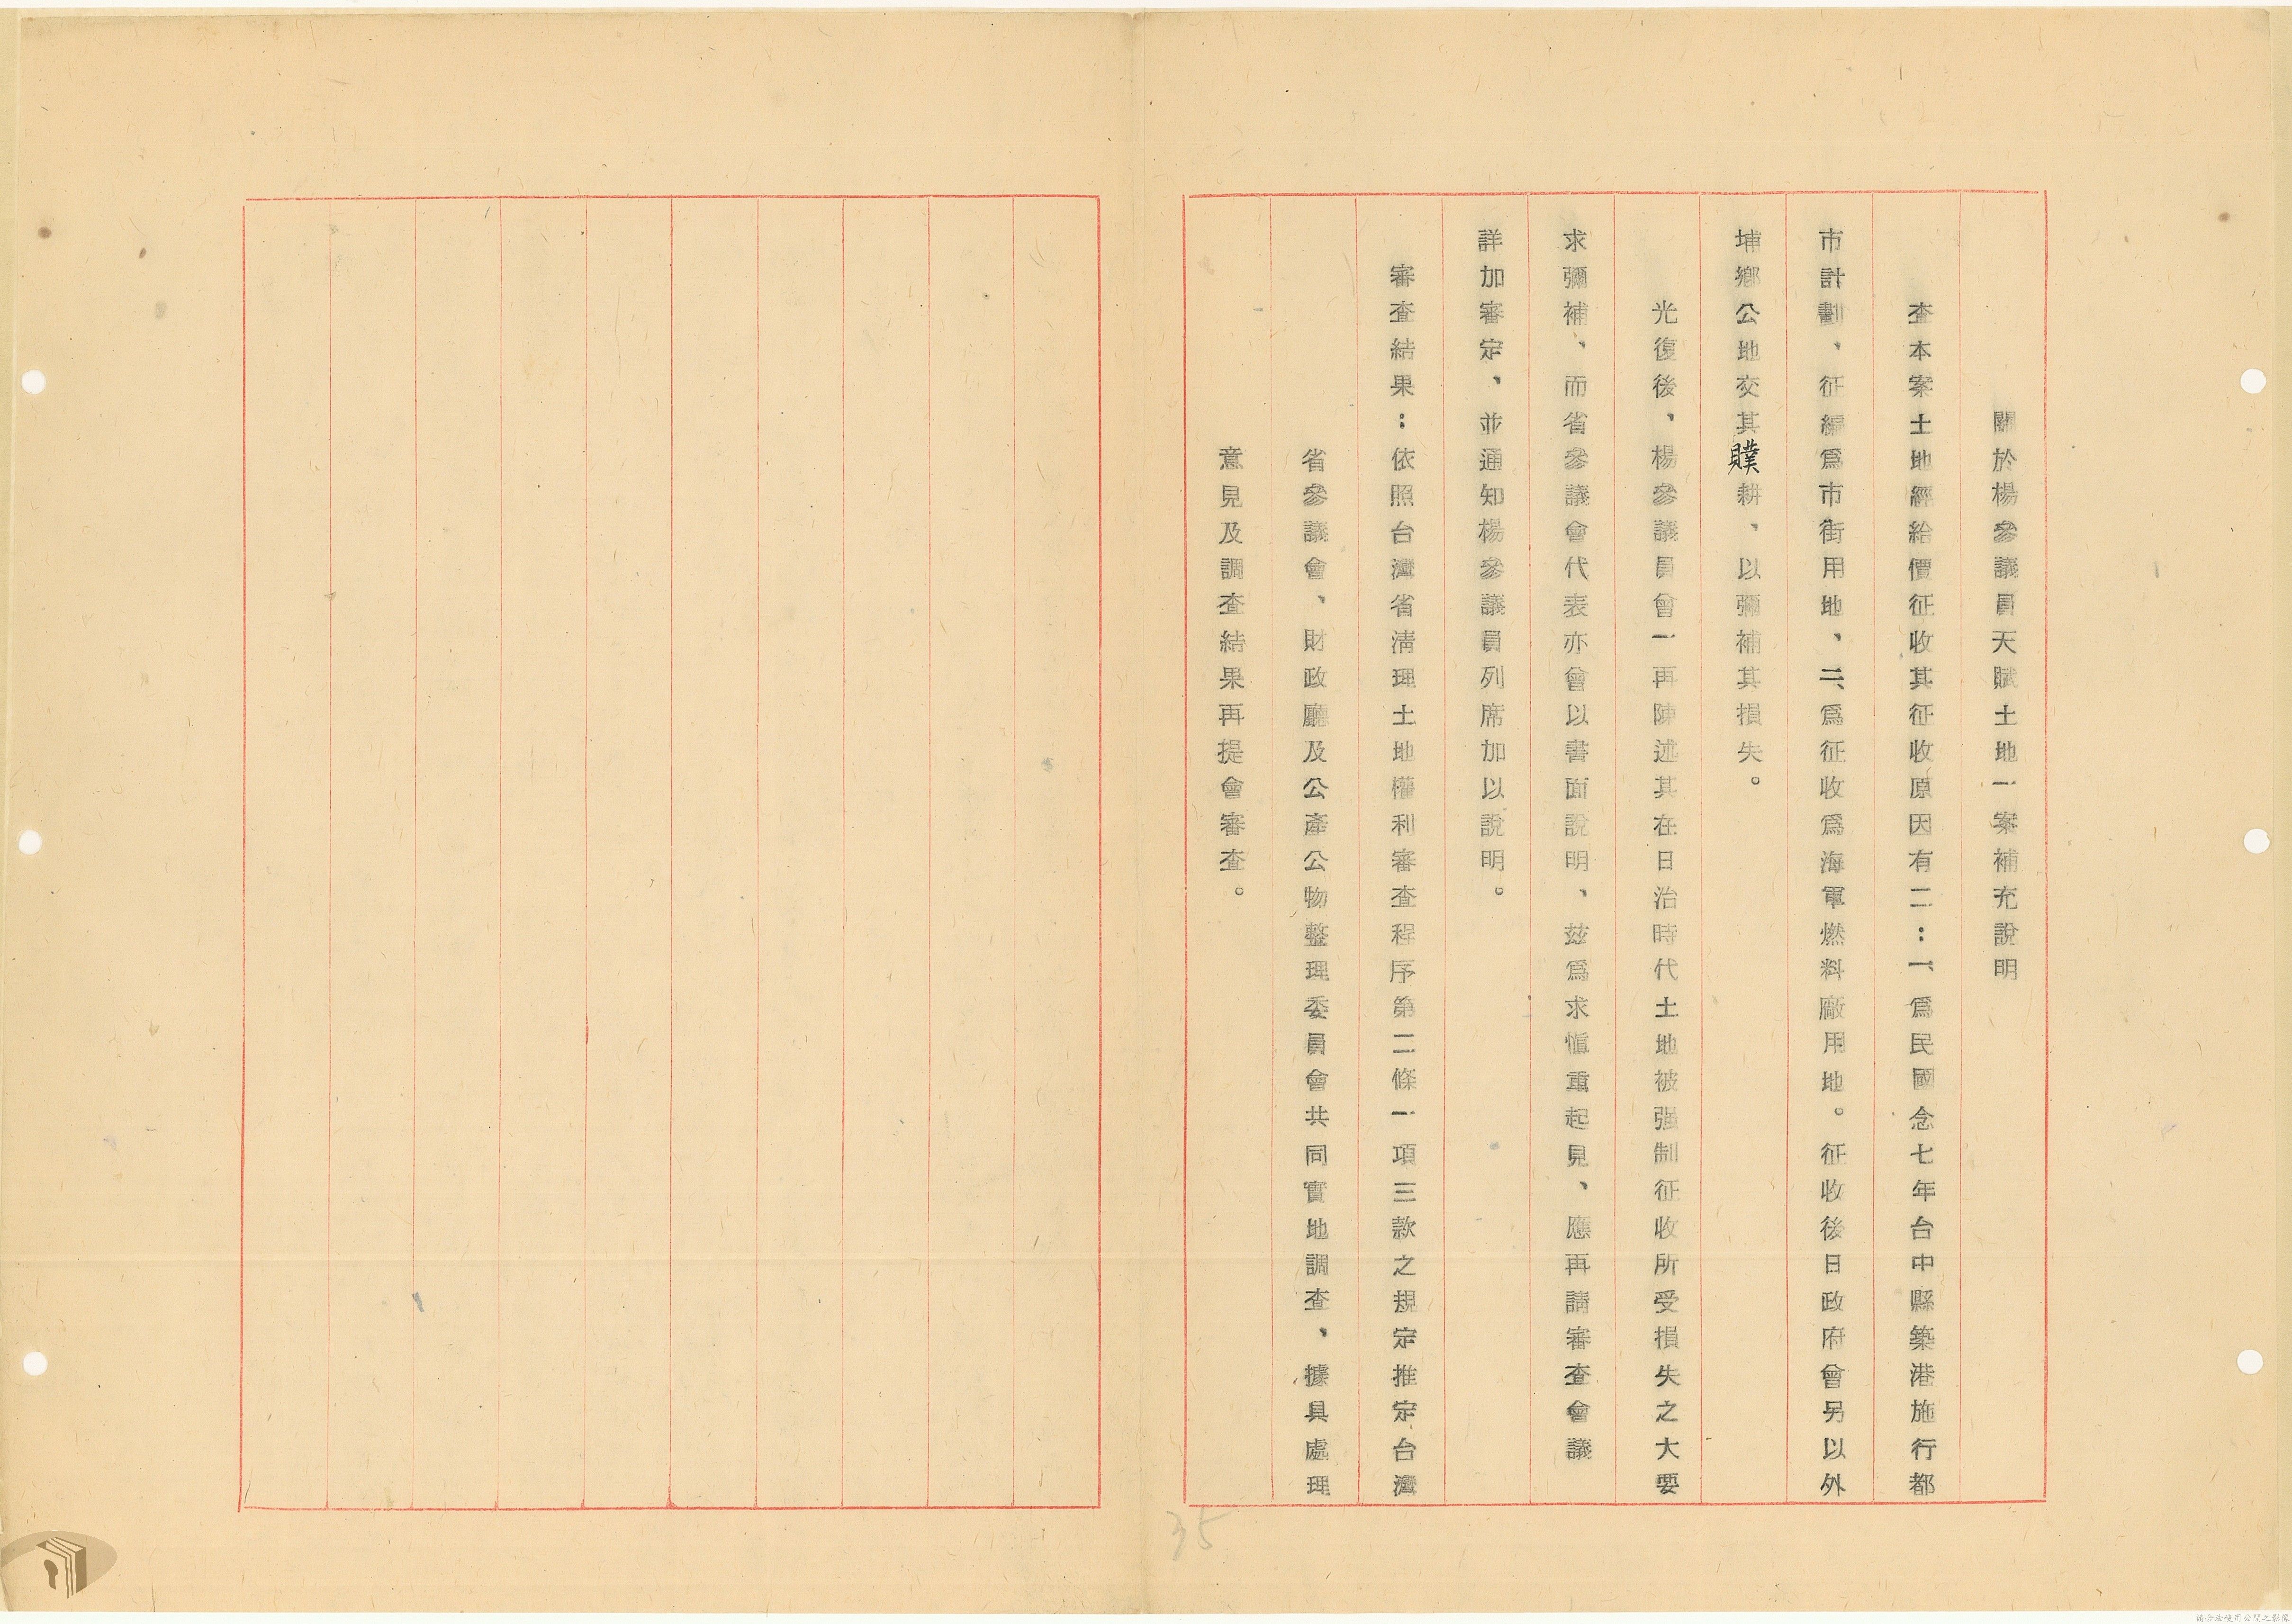 關於楊參議員天賦土地一案補充說明
查本案土地經給價征收其征收原因有二：一、爲民國念七年台中縣築港施行都
市計劃、征編爲市街用地、二、爲征收爲海軍燃料廠用地。征收後日政府曾另以外
埔鄉公地交其贌耕、以彌補其損失。
光復後、楊參議員曾一再陳述其在日治時代土地被强制征收所受損失之大要
求彌補、而省參議會代表亦曾以書面說明、玆爲求愼重起見、應再請審查會議
詳加審定、並通知楊參議員列席加以說明。
審查結果：依照台灣省淸理土地權利審查程序第二條一項三款之規定推定台灣
省參議會、財政廳及公產公物整理委員會共同實地調查、據具處理
意見及調查結果再提會審查。
35
請合法使用公開之影像